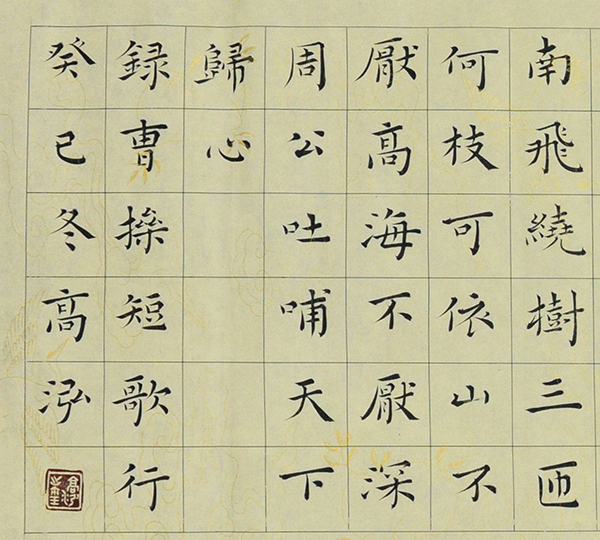 南飛繞樹三匝
何枝可依山不
厭高海不厭深
周公吐哺天下
歸心
録曹操短歌行
癸巳冬高泓